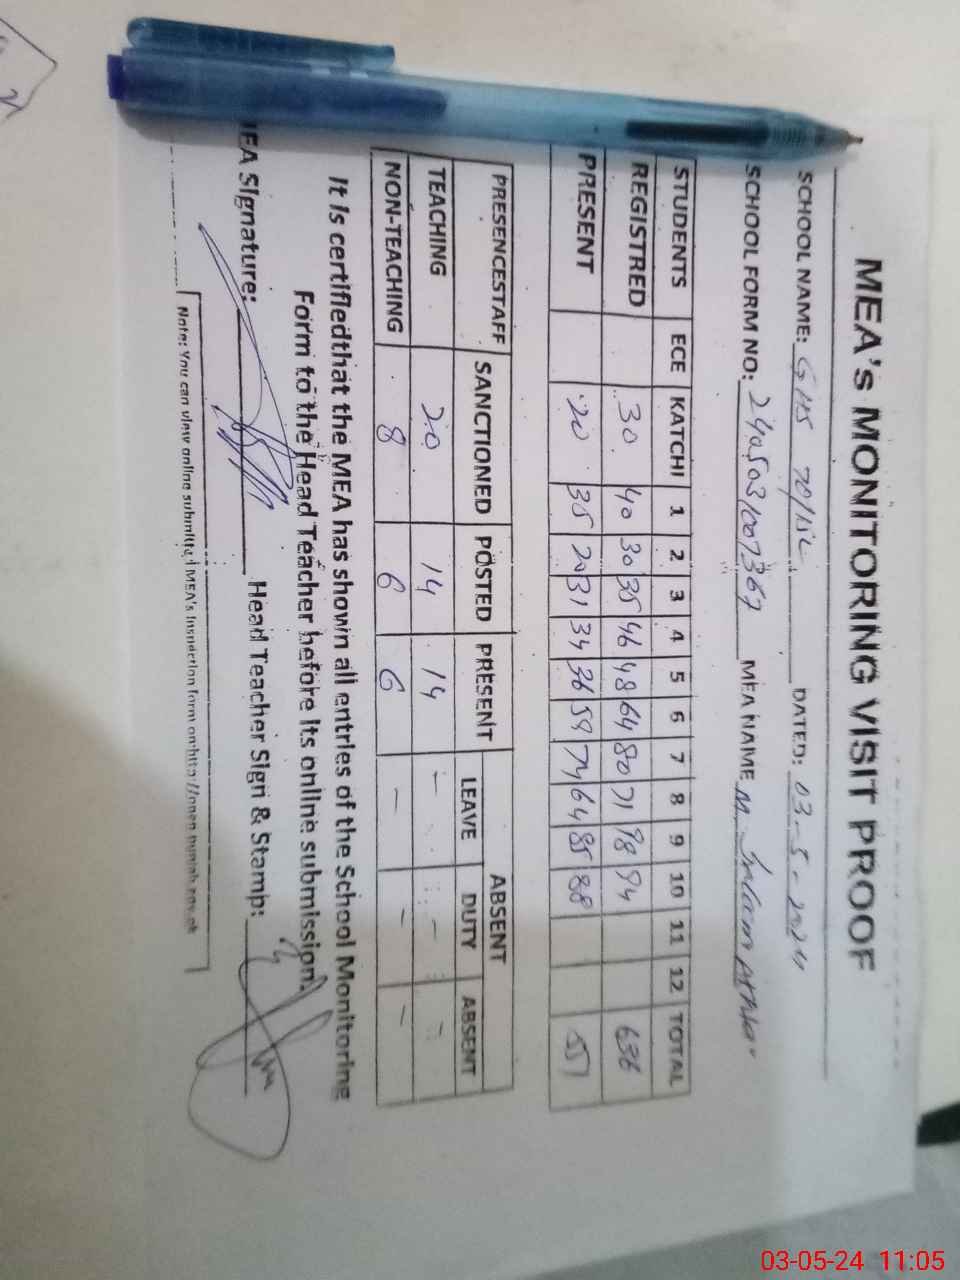 MEA's MONITORING VISIT PROOF
SCHOOL NAME: GHS 70/ DATED: 03-5-2024
SCHOOL FORM NO: MEA NAME M.
STUDENTS ECE KATCHI 1 2 3 4 5 6 7 8 9 10 11 12 TOTAL
REGISTRED 30 40 30 35 46 48 64 80 71 98 94 636
PRESENT 20 35 20 31 34 36 59 74 64 85 88 551
PRESENCESTAFF SANCTIONED POSTED PRESENT ABSENT
LEAVE DUTY ABSENT
TEACHING 20 14 14 - - -
NON-TEACHING 8 6 6 - - -
It is certifiedthat the MEA has shown all entries of the School Monitoring
Form to the Head Teacher before its online submission.
EA Signature: Head Teacher Sign & Stamp:
Note: You can view online submitted MEA's Inspection form on:http://open.punjab.gov.pk
03-05-24 11:05